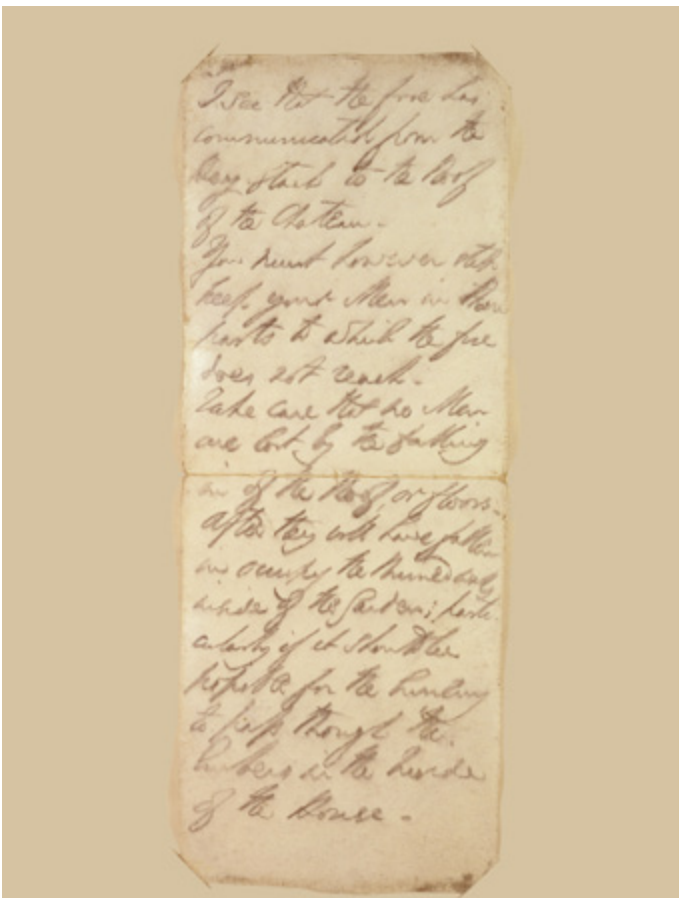 I see that the fire has
communicated from the
Hay Stack to the Roof
of the Chateau.
You must however still
keep your Men in those
parts to which the fire
does not reach.
Take care that no Men
are lost by the falling
in of the Roof, or floors.
After they will have fallen
in occupy the Ruined walls
inside of the Garden; parti-
cularly if it should be
possible for the Enemy
to pass through the
Embers in the Inside
of the House.